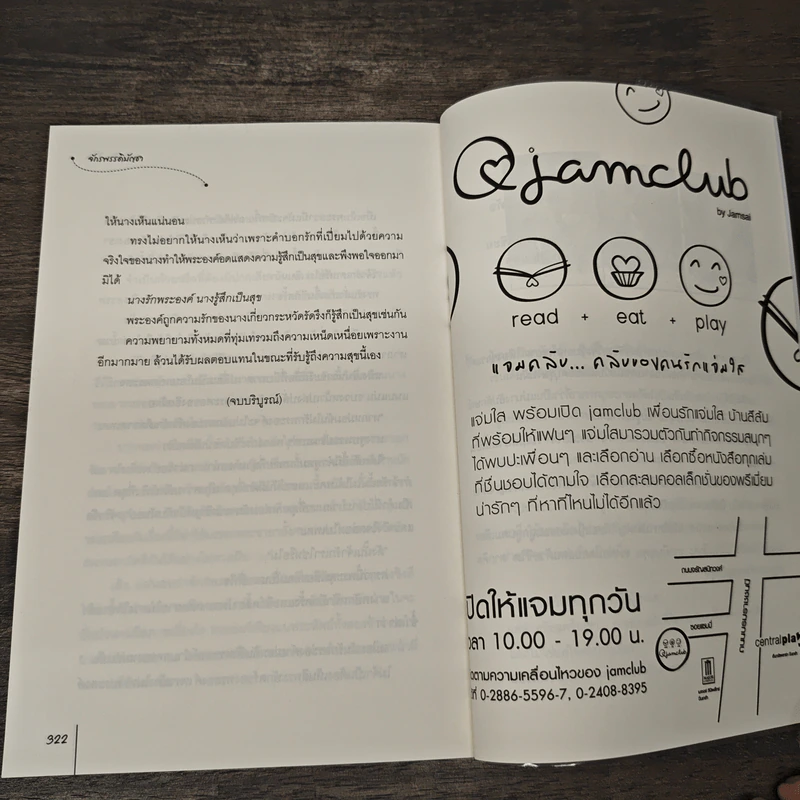 จักรพรรดิมัญชา
ให้นางเห็นแน่นอน
ทรงไม่อยากให้นางเห็นว่าเพราะคำบอกรักที่เปี่ยมไปด้วยความ
จริงใจของนางทำให้พระองค์อดแสดงความรู้สึกเป็นสุขและพึงพอใจออกมา
มิได้
นางรักพระองค์ นางรู้สึกเป็นสุข
พระองค์ถูกความรักของนางเกี่ยวกระหวัดรัดรึงก็รู้สึกเป็นสุขเช่นกัน
ความพยายามทั้งหมดที่ทุ่มเทรวมถึงความเหน็ดเหนื่อยเพราะงาน
อีกมากมาย ล้วนได้รับผลตอบแทนในขณะที่รับรู้ถึงความสุขนี้เอง
(จบบริบูรณ์)
322
@jamclub
by Jamsai
read + eat + play
แจมคลับ... คลับของคนรักแจ่มใส
แจ่มใส พร้อมเปิด jamclub เพื่อนรักแจ่มใส บ้านสีส้ม
ที่พร้อมให้แฟนๆ แจ่มใสมารวมตัวกันทำกิจกรรมสนุกๆ
ได้พบปะเพื่อนๆ และเลือกอ่าน เลือกซื้อหนังสือทุกเล่ม
ที่ชื่นชอบได้ตามใจ เลือกสะสมคอลเล็กชั่นของพรีเมี่ยม
น่ารักๆ ที่หาที่ไหนไม่ได้อีกแล้ว
ปิดให้แจมทุกวัน
ลา 10.00 - 19.00 น.
ตามความเคลื่อนไหวของ jamclub
ที่ 0-2886-5596-7, 0-2408-8395
ถนนจรัญสนิทวงศ์
ซอยแฮมมี่
@jamclub
centralpla